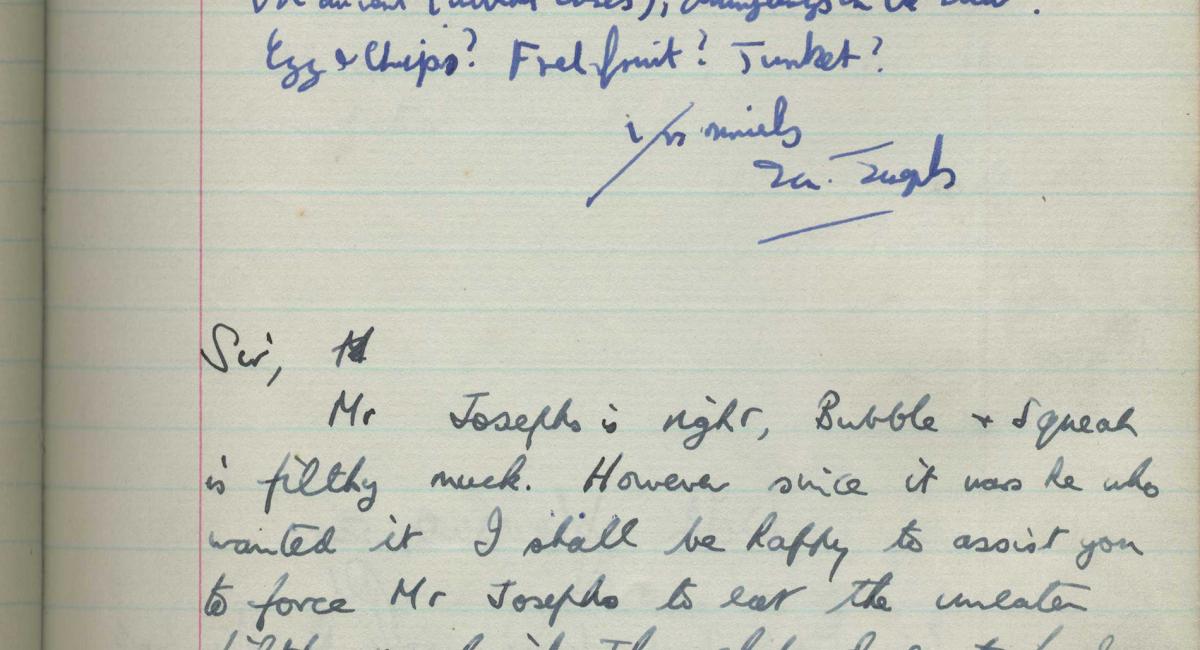 Egg & Chips? Fresh fruit? Junket?
Yrs
Sir,
Mr Josephs is right, Bubble & Squeak
is filthy muck. However since it was he who
wanted it I shall be happy to assist you
to force Mr Josephs to eat the uneaten